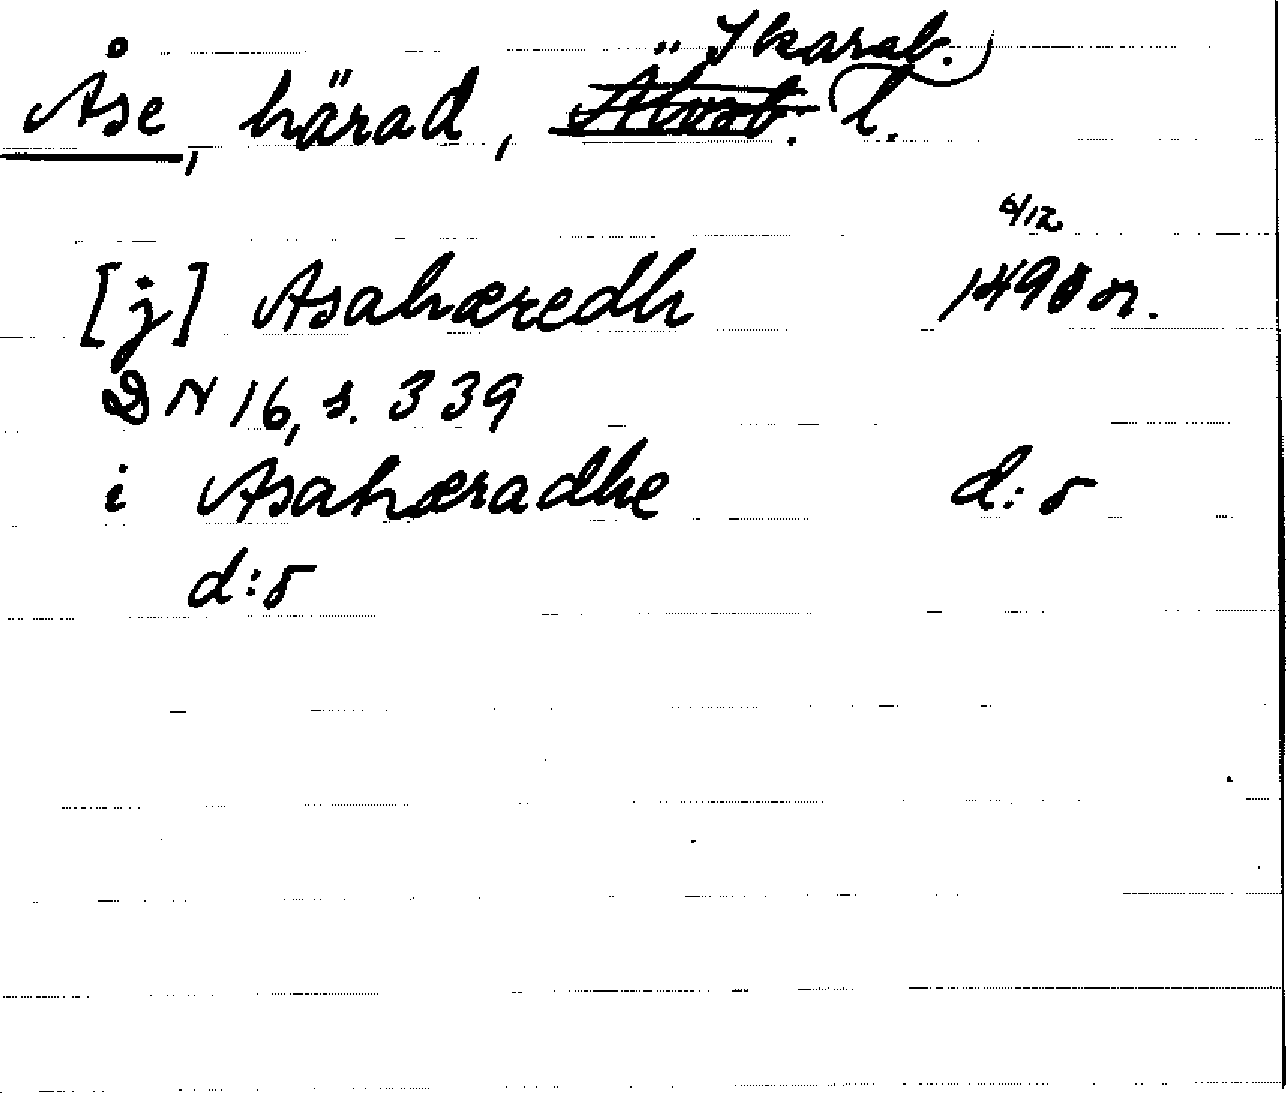 Åse, härad, Skarab. l.
6/12
[j] Asahæredh 1490 or.
DN 16, s. 339
i Asahæradhe d:o
d:o